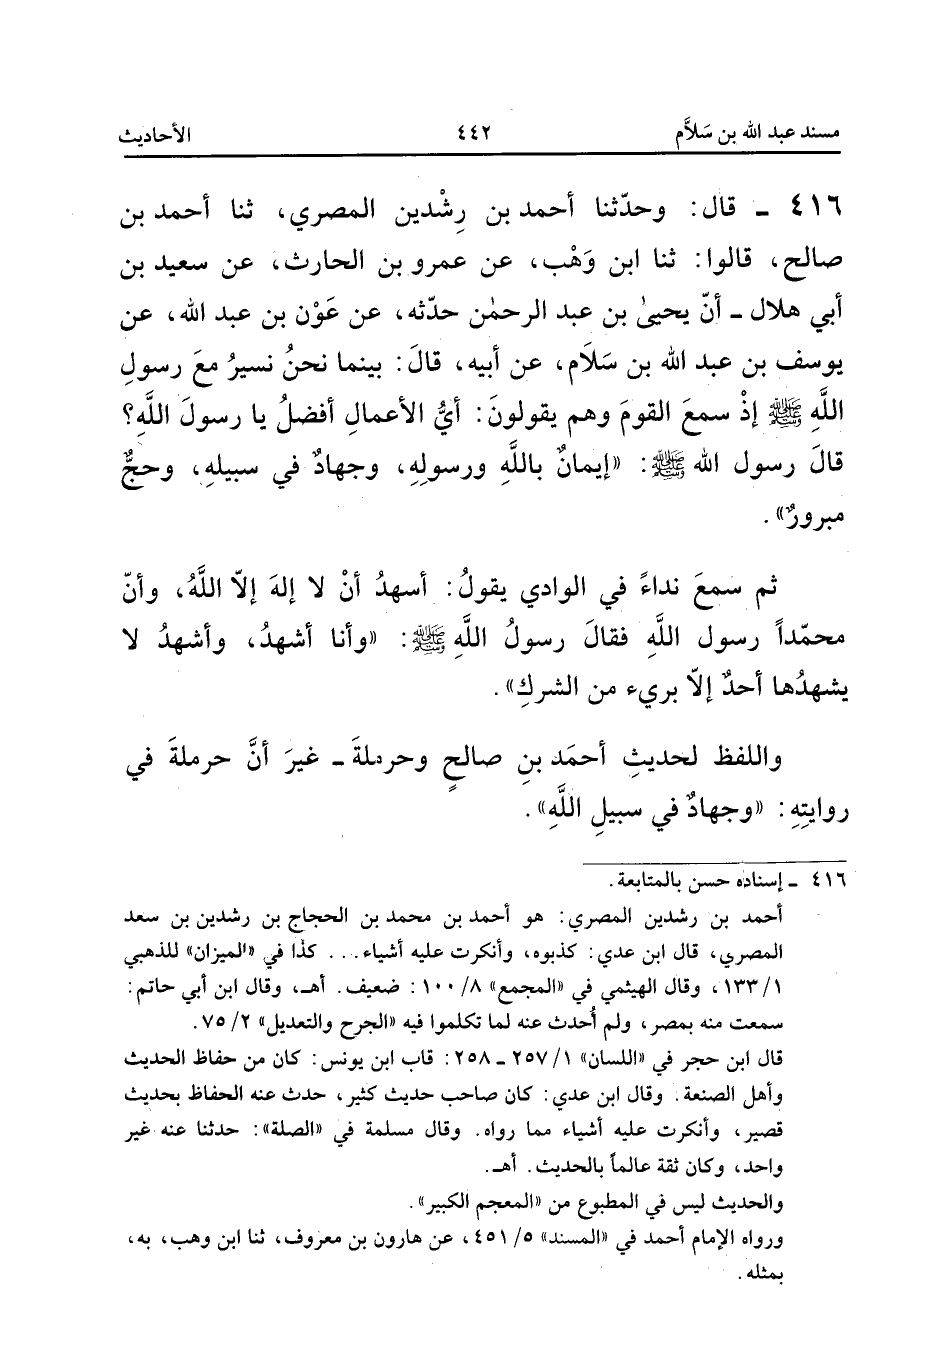 مسند عبد الله بن سَلاَّم ٤٤٢ الأحاديث
٤١٦ ـ قال: وحدّثنا أحمد بن رِشْدين المصري، ثنا أحمد بن
صالح، قالوا: ثنا ابن وَهْب، عن عمرو بن الحارث، عن سعيد بن
أبي هلال ـ أنّ يحيىٰ بن عبد الرحمٰن حدّثه، عن عَوْن بن عبد الله، عن
يوسف بن عبد الله بن سَلَام، عن أبيه، قالَ: بينما نحنُ نسيرُ معَ رسولِ
اللَّهِ ﷺ إذْ سمعَ القومَ وهم يقولونَ: أيُّ الأعمالِ أفضلُ يا رسولَ اللَّهِ؟
قالَ رسول الله ﷺ: «إيمانٌ باللَّهِ ورسولِهِ، وجهادٌ في سبيلهِ، وحجٌّ
مبرورٌ».
ثم سمعَ نداءً في الوادي يقولُ: أسهدُ أنْ لا إلهَ إلاّ اللَّهُ، وأنّ
محمّداً رسول اللَّهِ فقالَ رسولُ اللَّهِ ﷺ: «وأنا أشهدُ، وأشهدُ لا
يشهدُها أحدٌ إلاّ بريء من الشركِ».
واللفظ لحديثِ أحمَد بنِ صالحٍ وحرملةَ ـ غيرَ أنَّ حرملةَ في
روايتِهِ: «وجهادٌ في سبيلِ اللَّهِ».
٤١٦ ـ إسناده حسن بالمتابعة.
أحمد بن رشدين المصري: هو أحمد بن محمد بن الحجاج بن رشدين بن سعد
المصري، قال ابن عدي: كذبوه، وأنكرت عليه أشياء... كذا في «الميزان» للذهبي
١/١٣٣، وقال الهيثمي في «المجمع» ٨/١٠٠: ضعيف. أهـ، وقال ابن أبي حاتم:
سمعت منه بمصر، ولم أُحدث عنه لما تكلموا فيه «الجرح والتعديل» ٢/٧٥.
قال ابن حجر في «اللسان» ١/٢٥٧ ـ ٢٥٨: قاب ابن يونس: كان من حفاظ الحديث
وأهل الصنعة. وقال ابن عدي: كان صاحب حديث كثير، حدث عنه الحفاظ بحديث
قصير، وأنكرت عليه أشياء مما رواه. وقال مسلمة في «الصلة»: حدثنا عنه غير
واحد، وكان ثقة عالماً بالحديث. أهـ.
والحديث ليس في المطبوع من «المعجم الكبير».
ورواه الإمام أحمد في «المسند» ٥/٤٥١، عن هارون بن معروف، ثنا ابن وهب، به،
بمثله.